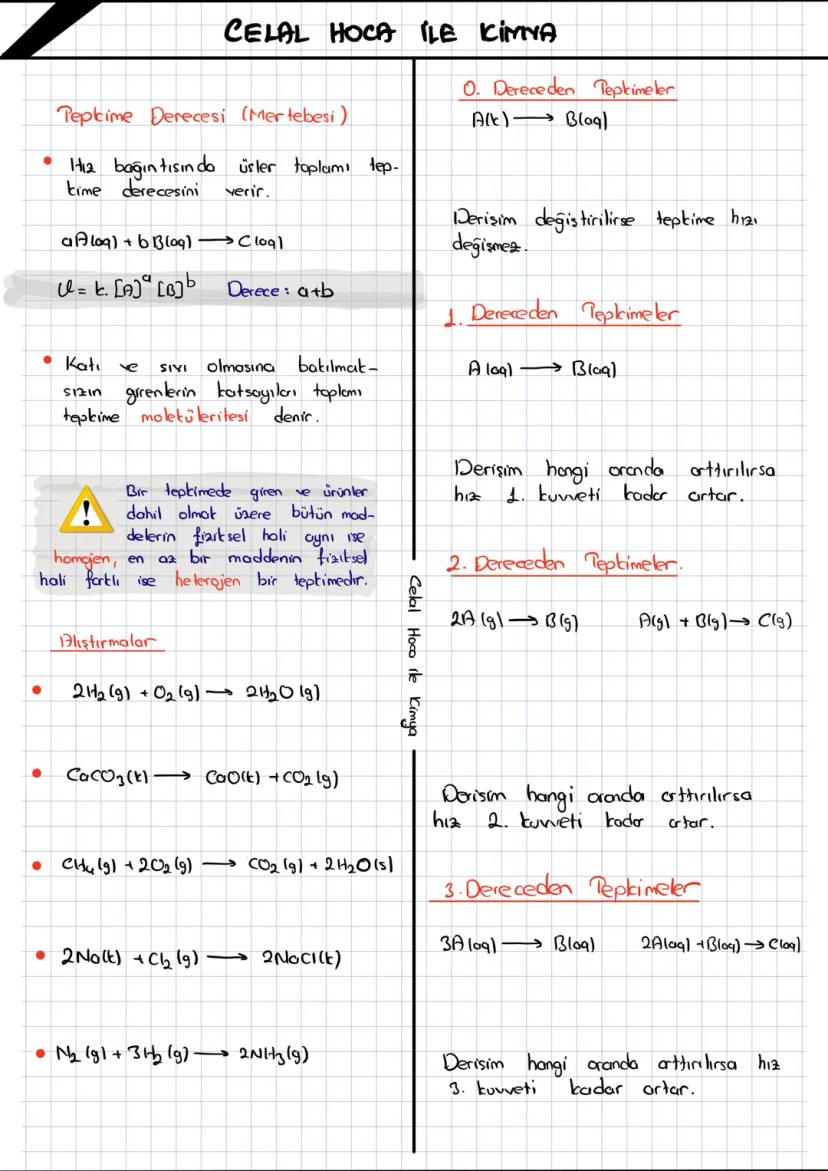 CELAL HOCA İLE KİMYA
Tepkime Derecesi (Mertebesi)
• Hız bağıntısında üsler toplamı tep-
kime derecesini verir.
aA(aq) + bB(aq) ⟶ C(aq)
υ = k. [A]ᵃ [B]ᵇ Derece: a+b
• Katı ve sıvı olmasına bakılmak-
sızın girenlerin katsayıları toplamı
tepkime moleküleritesi denir.
Bir tepkimede giren ve ürünler
dahil olmak üzere bütün mad-
delerin fiziksel hali aynı ise
homojen, en az bir maddenin fiziksel
hali farklı ise heterojen bir tepkimedir.
Alıştırmalar
• 2H₂(g) + O₂(g) ⟶ 2H₂O(g)
• CaCO₃(k) ⟶ CaO(k) + CO₂(g)
• CH₄(g) + 2O₂(g) ⟶ CO₂(g) + 2H₂O(s)
• 2Na(k) + Cl₂(g) ⟶ 2NaCl(k)
• N₂(g) + 3H₂(g) ⟶ 2NH₃(g)
Celal Hoca ile Kimya
0. Dereceden Tepkimeler
A(k) ⟶ B(aq)
Derişim değiştirilirse tepkime hızı
değişmez.
1. Dereceden Tepkimeler
A(aq) ⟶ B(aq)
Derişim hangi oranda arttırılırsa
hız 1. kuvveti kadar artar.
2. Dereceden Tepkimeler.
2A(g) ⟶ B(g) A(g) + B(g) ⟶ C(g)
Derişim hangi oranda arttırılırsa
hız 2. kuvveti kadar artar.
3. Dereceden Tepkimeler
3A(aq) ⟶ B(aq) 2A(aq) + B(aq) ⟶ C(aq)
Derişim hangi oranda arttırılırsa hız
3. kuvveti kadar artar.